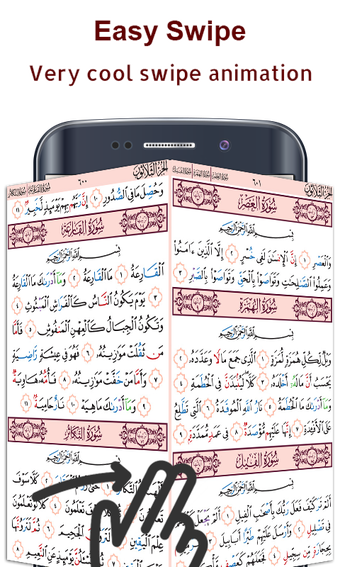 Easy Swipe
Very cool swipe animation
٦٠٠
الجزء الثلاثون
وَحُصِّلَ مَا فِي ٱلصُّدُورِ ١٠ إِنَّ رَبَّهُم بِهِمْ يَوْمَئِذٍ لَّخَبِيرٌ ١١
سُورَةُ القَارِعَةِ
بِسْمِ ٱللَّهِ ٱلرَّحْمَٰنِ ٱلرَّحِيمِ
ٱلْقَارِعَةُ ١ مَا ٱلْقَارِعَةُ ٢ وَمَآ أَدْرَىٰكَ مَا ٱلْقَارِعَةُ
٣ يَوْمَ يَكُونُ ٱلنَّاسُ كَٱلْفَرَاشِ ٱلْمَبْثُوثِ ٤
وَتَكُونُ ٱلْجِبَالُ كَٱلْعِهْنِ ٱلْمَنفُوشِ ٥ فَأَمَّا
مَن ثَقُلَتْ مَوَٰزِينُهُۥ ٦ فَهُوَ فِي عِيشَةٍ رَّاضِيَةٍ
٧ وَأَمَّا مَنْ خَفَّتْ مَوَٰزِينُهُۥ ٨ فَأُمُّهُۥ هَاوِيَةٌ
٩ وَمَآ أَدْرَىٰكَ مَا هِيَهْ ١٠ نَارٌ حَامِيَةٌۢ ١١
سُورَةُ التَّكَاثُرِ
بِسْمِ ٱللَّهِ ٱلرَّحْمَٰنِ ٱلرَّحِيمِ
كَلَّا سَوْفَ
٦٠١
سُورَةُ العَصْرِ
بِسْمِ ٱللَّهِ ٱلرَّحْمَٰنِ ٱلرَّحِيمِ
وَٱلْعَصْرِ ١ إِنَّ ٱلْإِنسَٰنَ لَفِي خُسْرٍ ٢ إِلَّا ٱلَّذِينَ ءَامَنُوا۟
وَعَمِلُوا۟ ٱلصَّٰلِحَٰتِ وَتَوَاصَوْا۟ بِٱلْحَقِّ وَتَوَاصَوْا۟ بِٱلصَّبْرِ ٣
سُورَةُ الهُمَزَةِ
بِسْمِ ٱللَّهِ ٱلرَّحْمَٰنِ ٱلرَّحِيمِ
وَيْلٌ لِّكُلِّ هُمَزَةٍ لُّمَزَةٍ ١ ٱلَّذِي جَمَعَ مَالًا وَعَدَّدَهُۥ ٢
يَحْسَبُ أَنَّ مَالَهُۥٓ أَخْلَدَهُۥ ٣ كَلَّا لَيُنۢبَذَنَّ فِي ٱلْحُطَمَةِ ٤
وَمَآ أَدْرَىٰكَ مَا ٱلْحُطَمَةُ ٥ نَارُ ٱللَّهِ ٱلْمُوقَدَةُ ٦ ٱلَّتِي تَطَّلِعُ
عَلَى ٱلْأَفْـِٔدَةِ ٧ إِنَّهَا عَلَيْهِم مُّؤْصَدَةٌ ٨ فِي عَمَدٍ مُّمَدَّدَةٍۭ ٩
سُورَةُ الفِيلِ
بِسْمِ ٱللَّهِ ٱلرَّحْمَٰنِ ٱلرَّحِيمِ
أَلَمْ تَرَ كَيْفَ فَعَلَ رَبُّكَ بِأَصْحَٰبِ ٱلْفِيلِ ١ أَلَمْ يَجْعَلْ